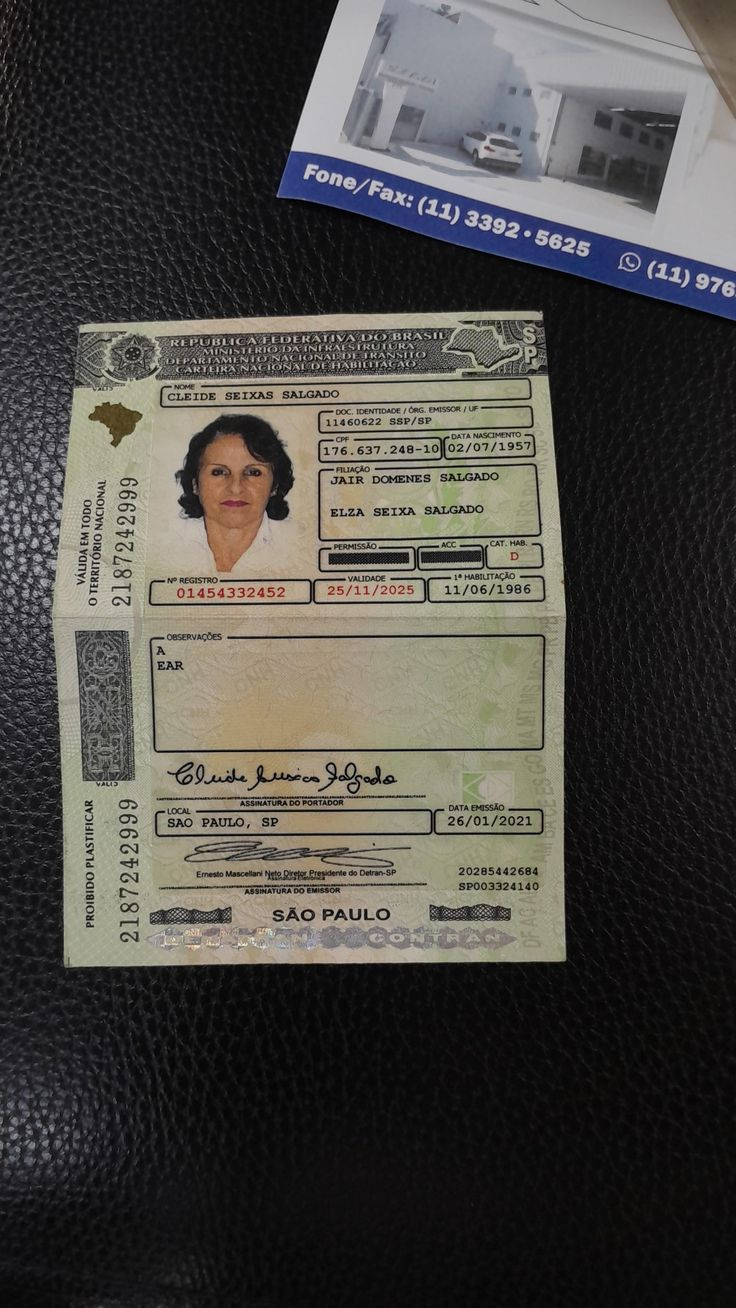 Fone/Fax: (11) 3392•5625 (11) 976
REPÚBLICA FEDERATIVA DO BRASIL
MINISTÉRIO DA INFRAESTRUTURA
DEPARTAMENTO NACIONAL DE TRÂNSITO
CARTEIRA NACIONAL DE HABILITAÇÃO
SP
NOME
CLEIDE SEIXAS SALGADO
DOC. IDENTIDADE / ÓRG. EMISSOR / UF
11460622 SSP/SP
CPF
176.637.248-10
DATA NASCIMENTO
02/07/1957
FILIAÇÃO
JAIR DOMENES SALGADO
ELZA SEIXA SALGADO
PERMISSÃO
ACC
CAT. HAB.
D
Nº REGISTRO
01454332452
VALIDADE
25/11/2025
1ª HABILITAÇÃO
11/06/1986
VÁLIDA EM TODO
O TERRITÓRIO NACIONAL
2187242999
OBSERVAÇÕES
A
EAR
Cleide Seixas Salgado
ASSINATURA DO PORTADOR
LOCAL
SAO PAULO, SP
DATA EMISSÃO
26/01/2021
Ernesto Mascellani Neto Diretor Presidente do Detran-SP
Assinatura Eletrônica
ASSINATURA DO EMISSOR
20285442684
SP003324140
PROIBIDO PLASTIFICAR
2187242999
SÃO PAULO
CONTRAN